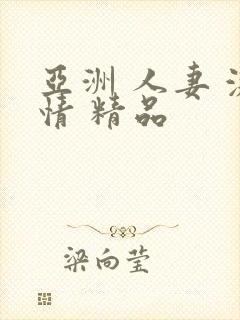 亞洲人妻
情精品
梁向莹